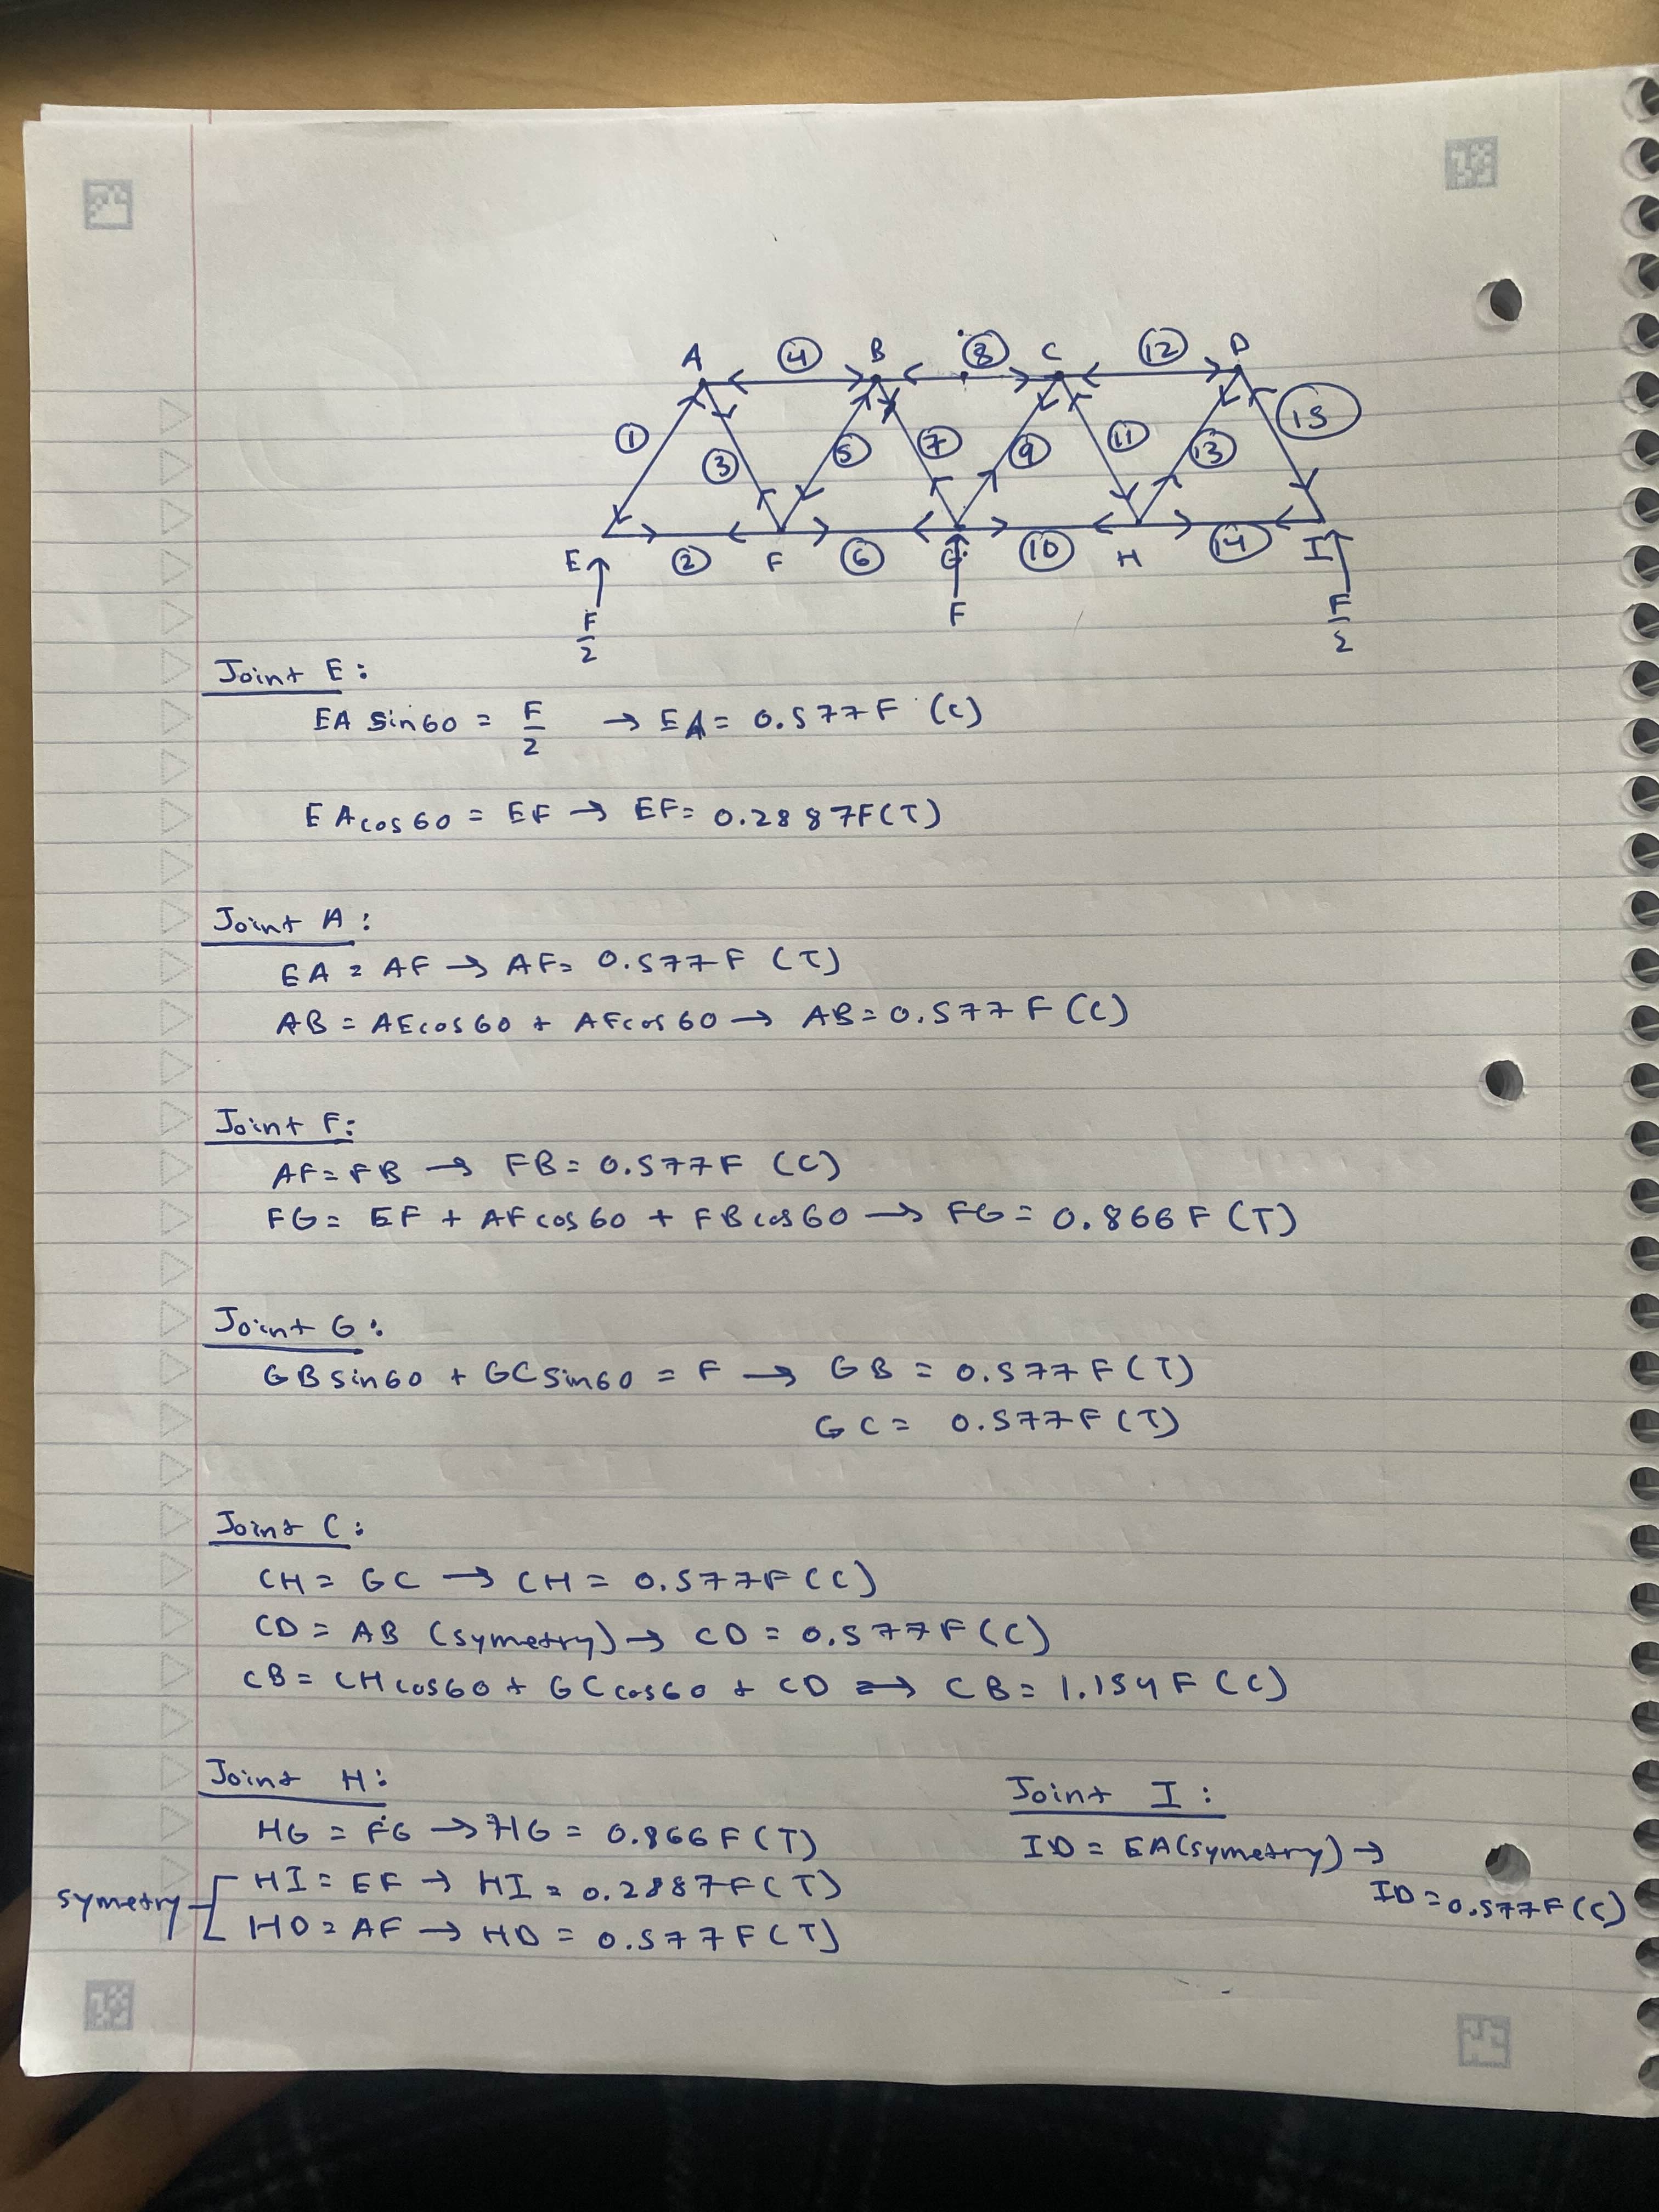 A ④ B ⑧ C ⑫ D
① ③ ⑤ ⑦ ⑨ ⑪ ⑬ ⑮
E ② F ⑥ G ⑩ H ⑭ I
F/2 F F/2
Joint E:
EA sin60 = F/2 → EA = 0.577F (C)
EA cos60 = EF → EF = 0.2887F(T)
Joint A:
EA = AF → AF = 0.577F (T)
AB = AEcos60 + AFcos60 → AB = 0.577F (C)
Joint F:
AF = FB → FB = 0.577F (C)
FG = EF + AFcos60 + FBcos60 → FG = 0.866F (T)
Joint G:
GBsin60 + GCsin60 = F → GB = 0.577F(T)
GC = 0.577F(T)
Joint C:
CH = GC → CH = 0.577F(C)
CD = AB (symetry) → CD = 0.577F(C)
CB = CHcos60 + GCcos60 + CD → CB = 1.154F (C)
Joint H:
HG = FG → HG = 0.866F(T)
symetry
HI = EF → HI = 0.2887F(T)
HD = AF → HD = 0.577F(T)
Joint I:
ID = EA(symetry) →
ID = 0.577F(C)